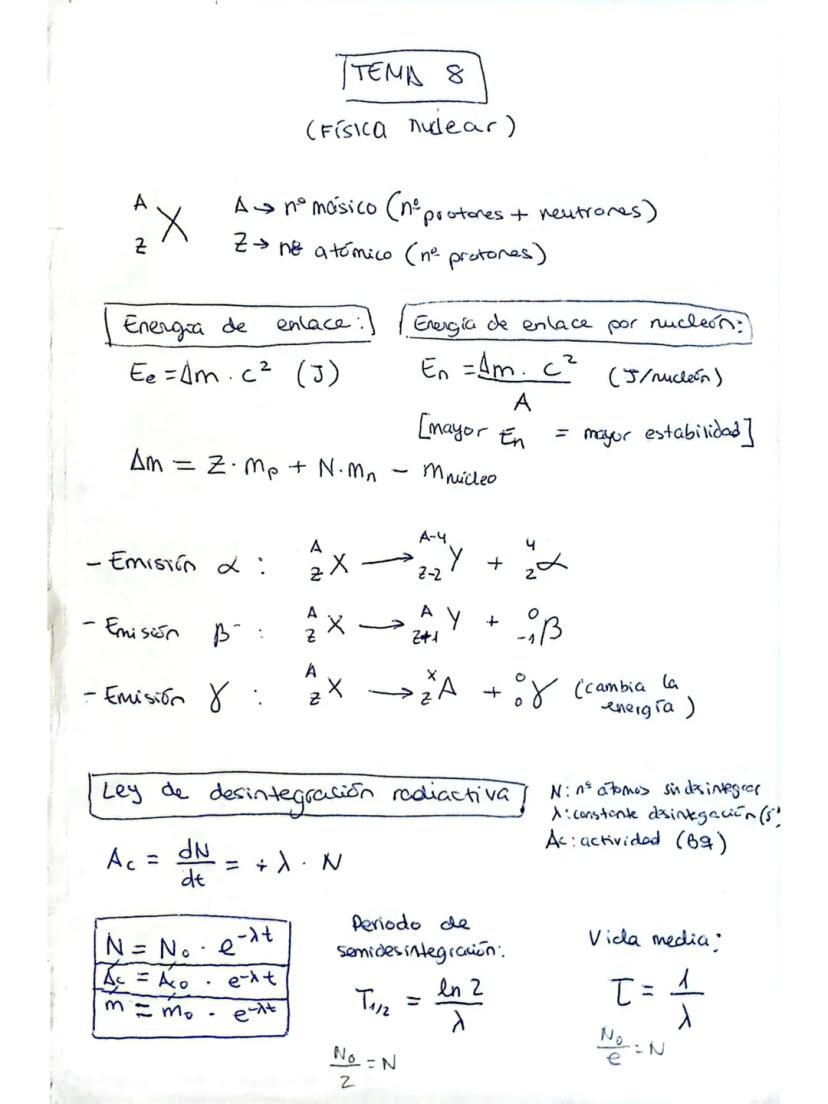 TEMA 8
(Física nuclear)
A Z X A → nº másico (nº protones + neutrones)
Z → nº atómico (nº protones)
Energía de enlace: Energía de enlace por nucleón:
Ee = Δm · c² (J) En = Δm · c² / A (J/nucleón)
[mayor En = mayor estabilidad]
Δm = Z · mp + N · mn − mnúcleo
- Emisión α : A Z X → A-4 Z-2 Y + 4 2 α
- Emisión β⁻ : A Z X → A Z+1 Y + 0 -1 β
- Emisión γ : A Z X → X Z A + 0 0 γ (cambia la
energía)
Ley de desintegración radiactiva N: nº átomos sin desintegrar
λ: constante desintegación (s
Ac: actividad (Bq)
Ac = dN/dt = + λ · N
Periodo de
semidesintegración: Vida media:
N = N₀ · e^-λt
Ac = Ac₀ · e^-λt
m = m₀ · e^-λt
T1/2 = ln 2 / λ τ = 1 / λ
N₀/2 = N N₀/e = N